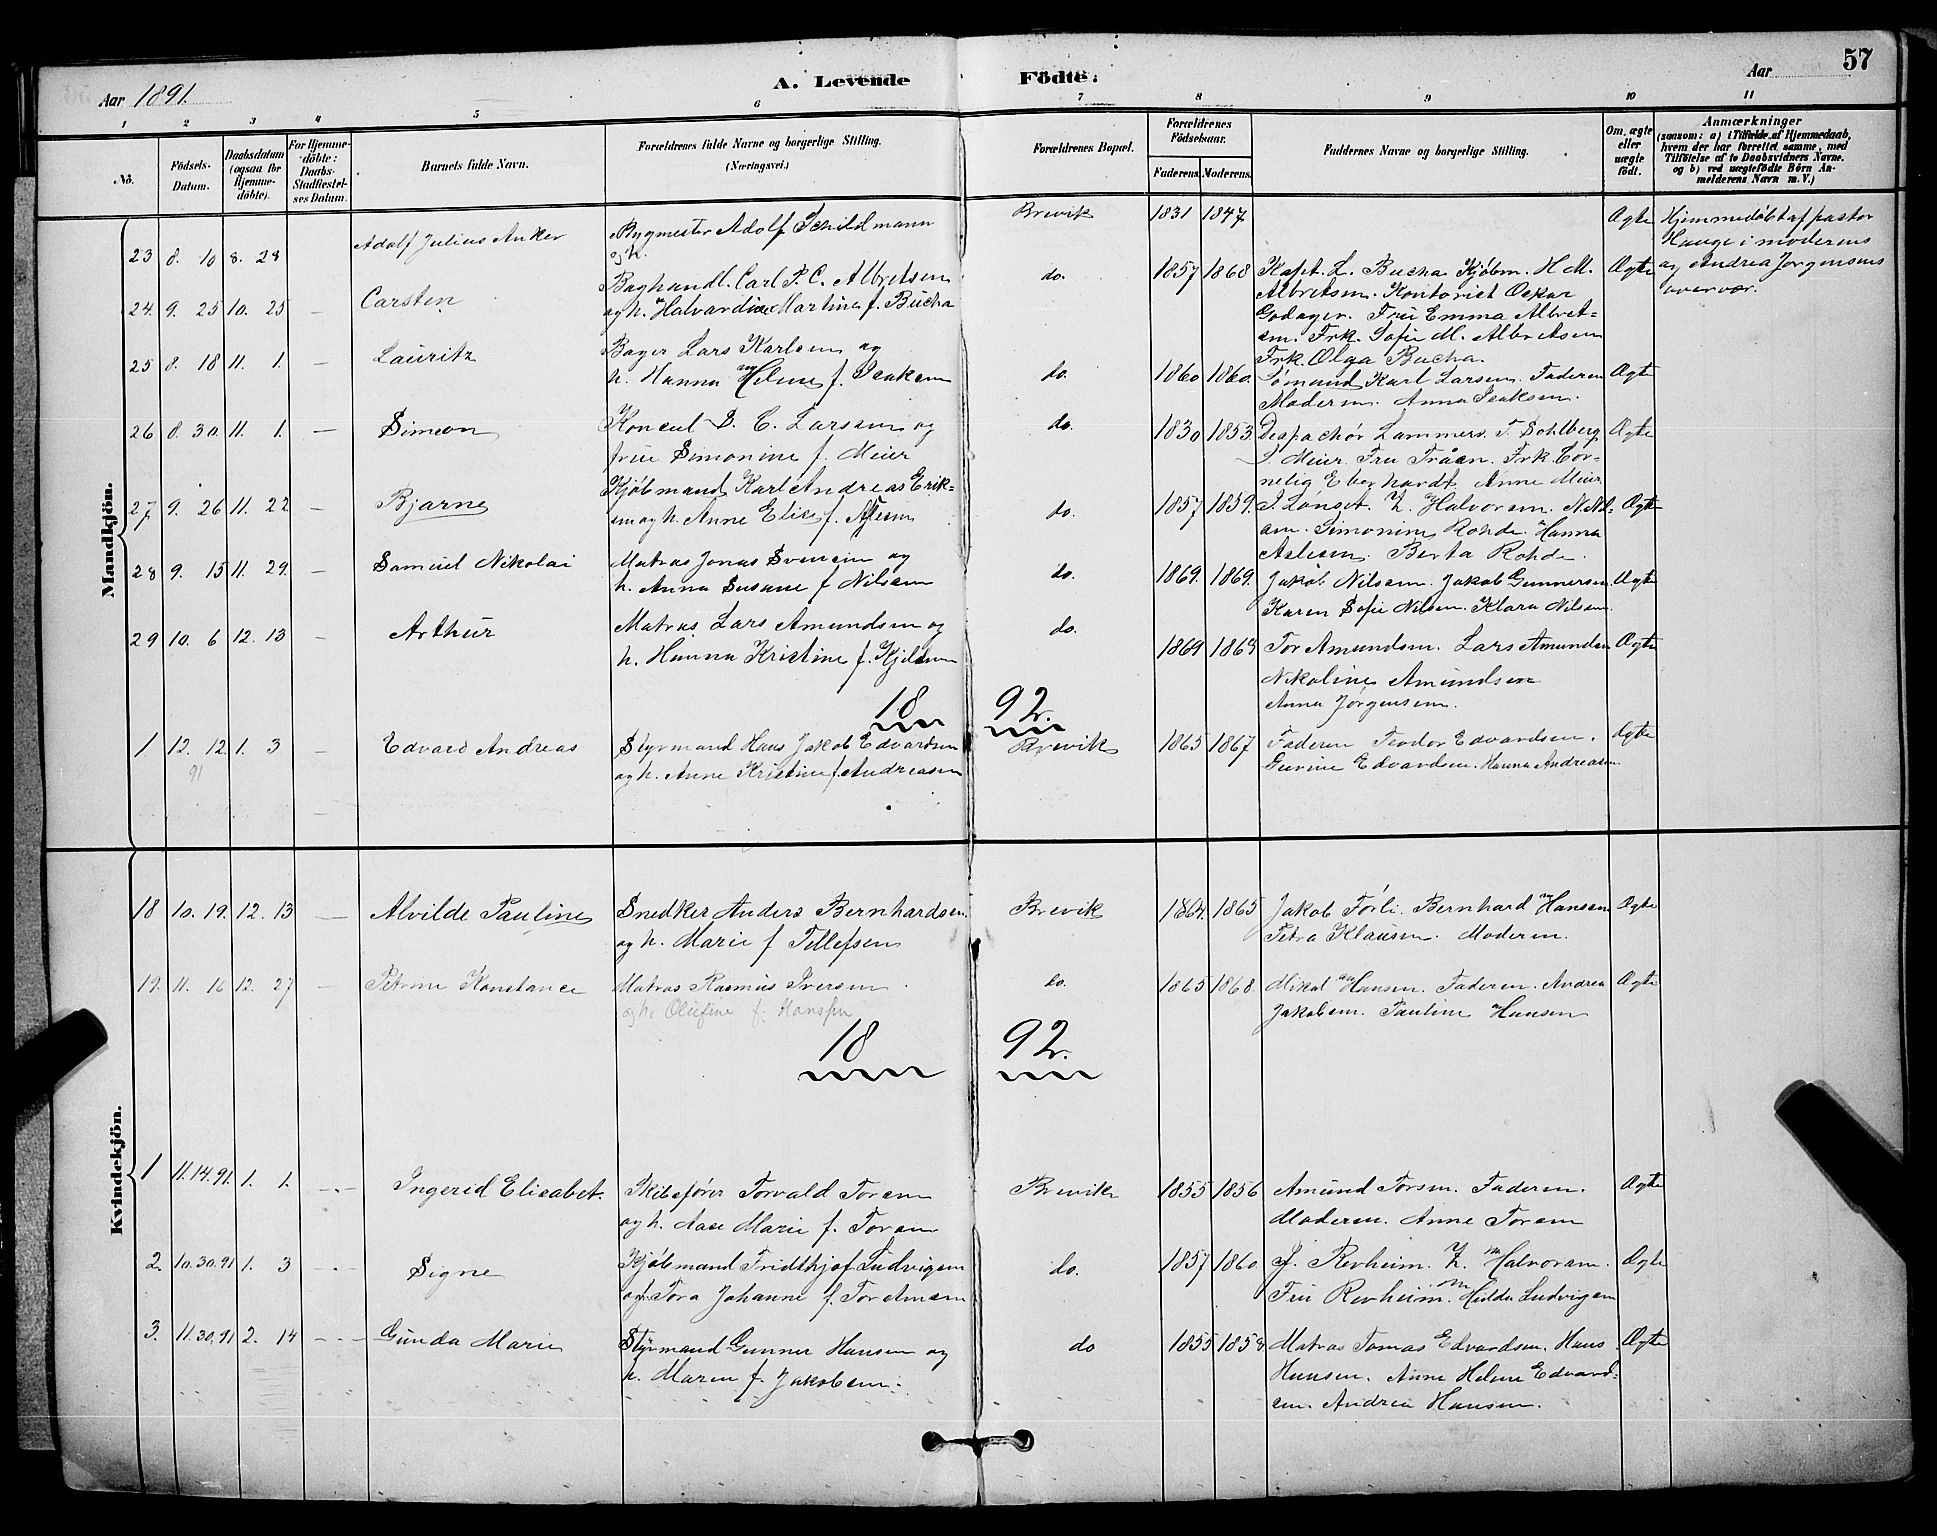 57
Aar 1891. A. Levende Födte: Aar
1 2 3 4 5 6 7 8 9 10 11
No. Födsels-Datum. Daabsdatum (ogsaa for Hjemme-döbte). For Hjemme-döbte: Daabs-Stadfæstel-ses Datum. Barnets fulde Navn. Forældrenes fulde Navne og borgerlige Stilling. (Næringsvei.) Forældrenes Bopæl. Forældrenes Födselsaar. Faderens. Moderens. Faddernes Navne og borgerlige Stilling. Om ægte eller uægte födt. Anmærkninger (saasom: a) i Tilfælde af Hjemmedaab, hvem der har forrettet samme, med Tilföielse af to Daabsvidners Navne, og b) ved uægtefödte Börn An-melderens Navn m. V.)
Mandkjön.
23 8. 10 8. 28 Adolf Julius Anker Bygmester Adolf Schildmann Brevik 1831 1847 Ægte Hjemmedøbt af pastor
og h. Hauge i moderens
og Andrea Jørgensens
overvær.
24. 9. 25 10. 25 — Carsten Boghandl. Carl P. C. Albretsen do. 1857 1868 Kapt. L. Bucha Kjøbm. H M. Ægte
og h. Halvardine Martine f. Bucha Albretsen. Kontorist Oskar
Godager. Fru Emma Albret=
sen. Frk. Sofie M. Albretsen
Frk. Olga Bucha.
25 8. 18 11. 1. — Lauritz Bager Lars Karlsen og do. 1860 1860. Sømand Karl Larsen. Faderen Ægte
h. Hanna Helene f. Isaksen Moderen. Anna Isaksen.
26 8. 30. 11. 1. — Simeon Konsul S. C. Larsen og do. 1830 1853. Despachør Lammers. T. Sohlberg Ægte
frue Simonine f. Meier S. Meier. Fru Tråen. Frk. Cor=
nelia Eberhardt Anne Meier
27 9. 26 11. 22 — Bjarne Kjøbmand Karl Andreas Erik= do. 1857 1859. Lønset. Z. Halvorsen. Ægte
sen og h. Anne Elise f. Simonine Rohde. Hanna
Aslesen. Berta Rohde.
28 9. 15 11. 29. — Samuel Nikolai Matros Jonas Svensen og do. 1869. 1869. Jakob Nilsen. Jakob Gunnersen Ægte
h. Anna Susane f Nilsen Karen Sofie Nilsen. Klara Nilsen.
29 10. 6 12. 13 — Arthur Matros Lars Amundsen og do. 1869 1869 Tor Amundsen. Lars Amundsen Ægte
h. Hanna Kristine f. Kjelsen Nikoline Amundsen
Anna Jørgensen.
18 92.
1 12. 12 1. 3 — Edvard Andreas Styrmand Hans Jakob Edvardsen Brevik 1865 1867 Faderen Teodor Edvardsen. Ægte
91 og h. Anne Kristine f. Andreasen Gurine Edvardsen. Hanna Andreasen
Kvindekjön.
18 10. 19. 12. 13 — Alvilde Pauline Snedker Anders Bernhardsen Brevik 1864. 1865 Jakob Førli. Bernhard Hansen Ægte
og h. Marie f Tellefsen Petra Klausen. Moderen.
19. 11. 16 12. 27 — Petrine Konstance Matros Rasmus Iversen do. 1865 1868 Mikal Hansen. Faderen. Andrea Ægte
og h. Olufine f. Hansen Jakobsen. Pauline Hansen
18 92.
1 11. 14. 91. 1. 1. — Ingerid Elisabet. Skibsfører Torvald Torsen Brevik 1855 1856 Amund Torsen. Faderen. Ægte
og h. Aase Marie f. Torsen Moderen. Anne Torsen
2. 10. 30. 91 1. 3 — Signe Kjøbmand Fridthjof Ludvigsen do. 1857 1860. Revheim. Z. Halvorsen. Ægte
og Tora Johanne f. Fru Revheim. Hilda Ludvigsen
3. 11. 30. 91 2. 14 — Gunda Marie Styrmand Gunner Hansen og do 1855 1858 Matros Tomas Edvardsen. Hans Ægte
h. Maren f. Jakobsen. Hansen. Anne Helene Edvard=
sen. Andrea Hansen.